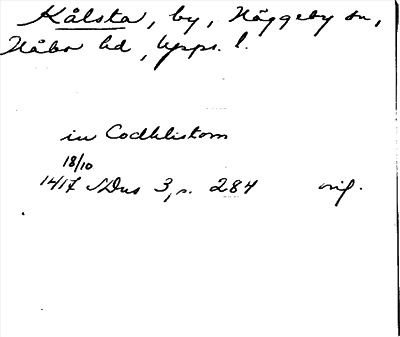 Kålsta, by, Häggeby sn,
Håbo hd, Upps. l.
in Codhlistom
18/10
1417 SDns 3, s. 284 orig.